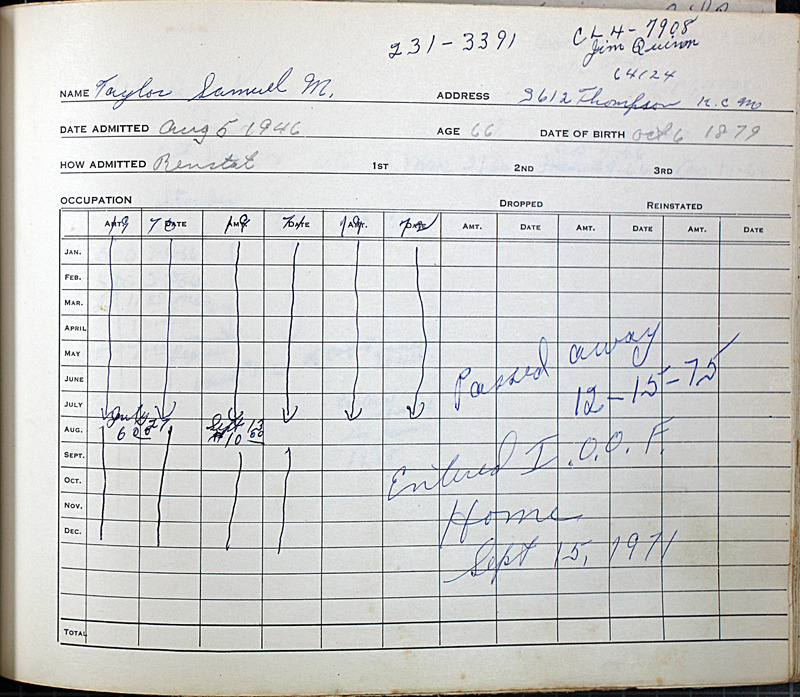 231-3391
CL4-7908
Jim Quinn
64124
NAME Taylor Samuel M. ADDRESS 3612 Thompson K.C Mo
DATE ADMITTED Aug 5 1946 AGE 66 DATE OF BIRTH Oct 6 1879
HOW ADMITTED Reinstat 1ST 2ND 3RD
OCCUPATION DROPPED REINSTATED
AMT. DATE AMT. DATE AMT. DATE AMT. DATE AMT. DATE AMT. DATE
JAN.
FEB.
MAR.
APRIL
MAY
JUNE
JULY
July 27 Sept 13
AUG. 6 25 #10 50
SEPT.
OCT.
NOV.
DEC.
TOTAL
Passed away
12-15-75
Entered I.O.O.F.
Home
Sept 15, 1971